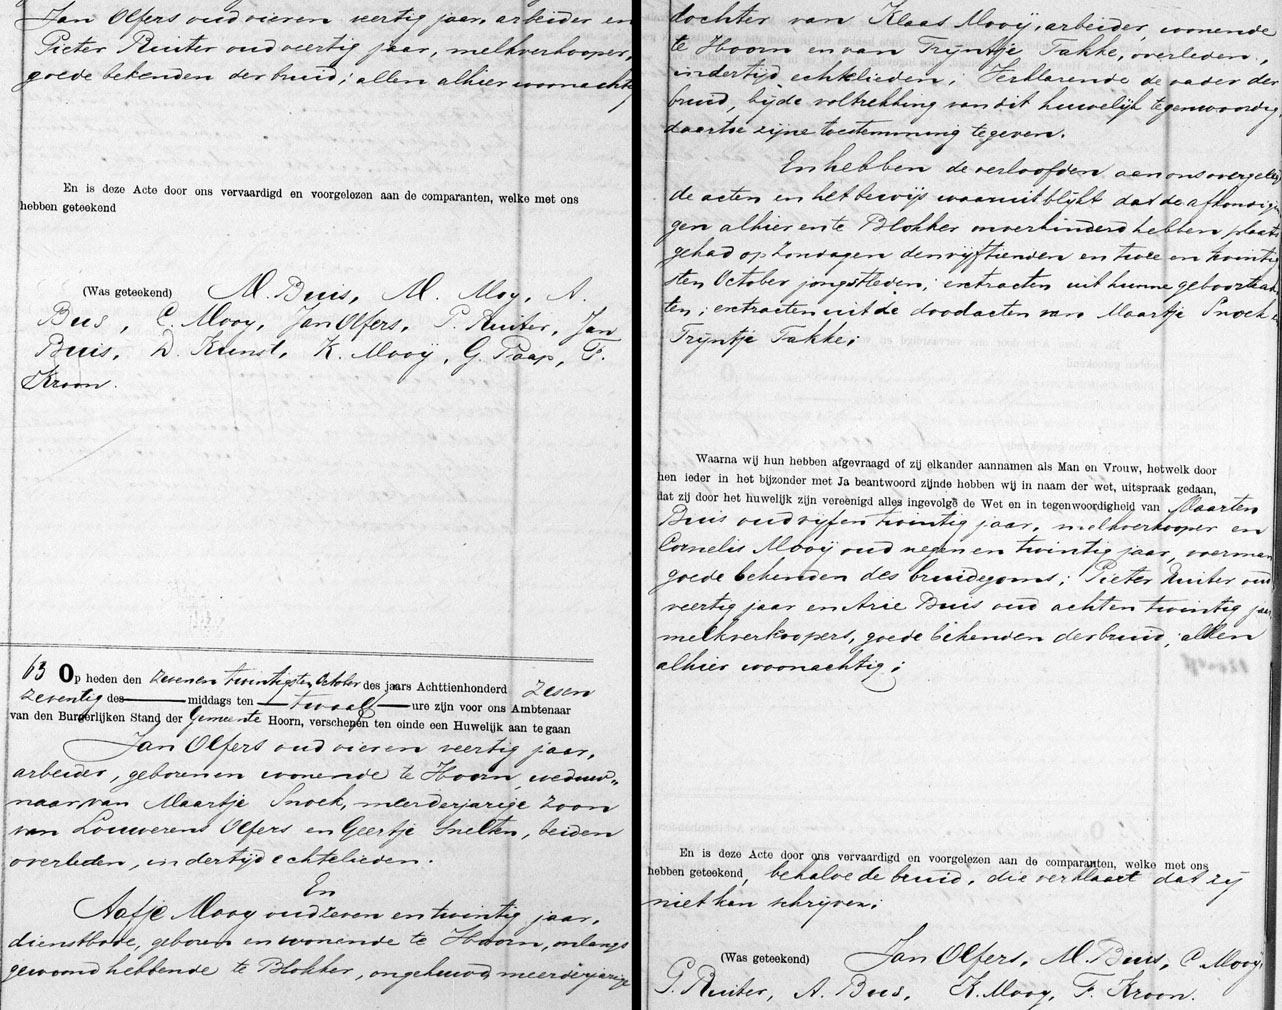 Jan Olfers oud vier en veertig jaar, arbeider en
Pieter Ruiter oud veertig jaar, melkverkooper,
goede bekenden der bruid; allen alhier woonachtig
En is deze Acte door ons vervaardigd en voorgelezen aan de comparanten, welke met ons
hebben geteekend
(Was geteekend) M. Buis, M. Moy, A.
Buis, C. Mooy, Jan Olfers, P. Ruiter, Jan
Buis, D. Kunst, K. Mooÿ, G. Paap, F.
Kroon.
63 Op heden den zeven en twintigsten October des jaars Achttienhonderd zes en
zeventig des middags ten twaalf ure zijn voor ons Ambtenaar
van den Burgerlijken Stand der Gemeente Hoorn, verschenen ten einde een Huwelijk aan te gaan
Jan Olfers oud vier en veertig jaar,
arbeider, geboren en wonende te Hoorn, weduw„
naar van Maartje Snoek, meerderjarige zoon
van Louwerens Olfers en Geertje Snelten, beiden
overleden, in der tijd echtelieden.
En
Aafje Mooy oud zeven en twintig jaar,
dienstbode, geboren en wonende te Hoorn, onlangs
gewoond hebbende te Blokker, ongehuwd meerderjarige
dochter van Klaas Mooÿ, arbeider, wonende
te Hoorn en van Trÿntje Takke, overleden,
indertijd echtelieden; Verklarende de vader der
bruid, bij de voltrekking van dit huwelijk tegenwoordig,
daartoe zijne toestemming te geven.
En hebben de verloofden aan ons overgelegd
de acten en het bewijs waaruit blijkt dat de afkondigin
gen alhier en te Blokker onverhinderd hebben plaats
gehad op Zondagen den vijftienden en twee en twintig
sten October jongstleden; extracten uit hunne geboorteac
ten; extracten uit de doodacten van Maartje Snoek en
Trÿntje Takke;
Waarna wij hun hebben afgevraagd of zij elkander aannamen als Man en Vrouw, hetwelk door
hen ieder in het bijzonder met Ja beantwoord zijnde hebben wij in naam der wet, uitspraak gedaan,
dat zij door het huwelijk zijn vereenigd alles ingevolge de Wet en in tegenwoordigheid van Maarten
Buis oud vijf en twintig jaar, melkverkooper en
Cornelis Mooÿ oud negen en twintig jaar, voerman
goede bekenden des bruidegoms; Pieter Ruiter oud
veertig jaar en Arie Buis oud acht en twintig jaar
melkverkoopers, goede bekenden der bruid, allen
alhier woonachtig;
En is deze Acte door ons vervaardigd en voorgelezen aan de comparanten, welke met ons
hebben geteekend, behalve de bruid, die verklaart dat zij
niet kan schrijven;
(Was geteekend) Jan Olfers, M. Buis, C. Mooÿ,
P. Ruiter, A. Buis, K. Mooy, F. Kroon.